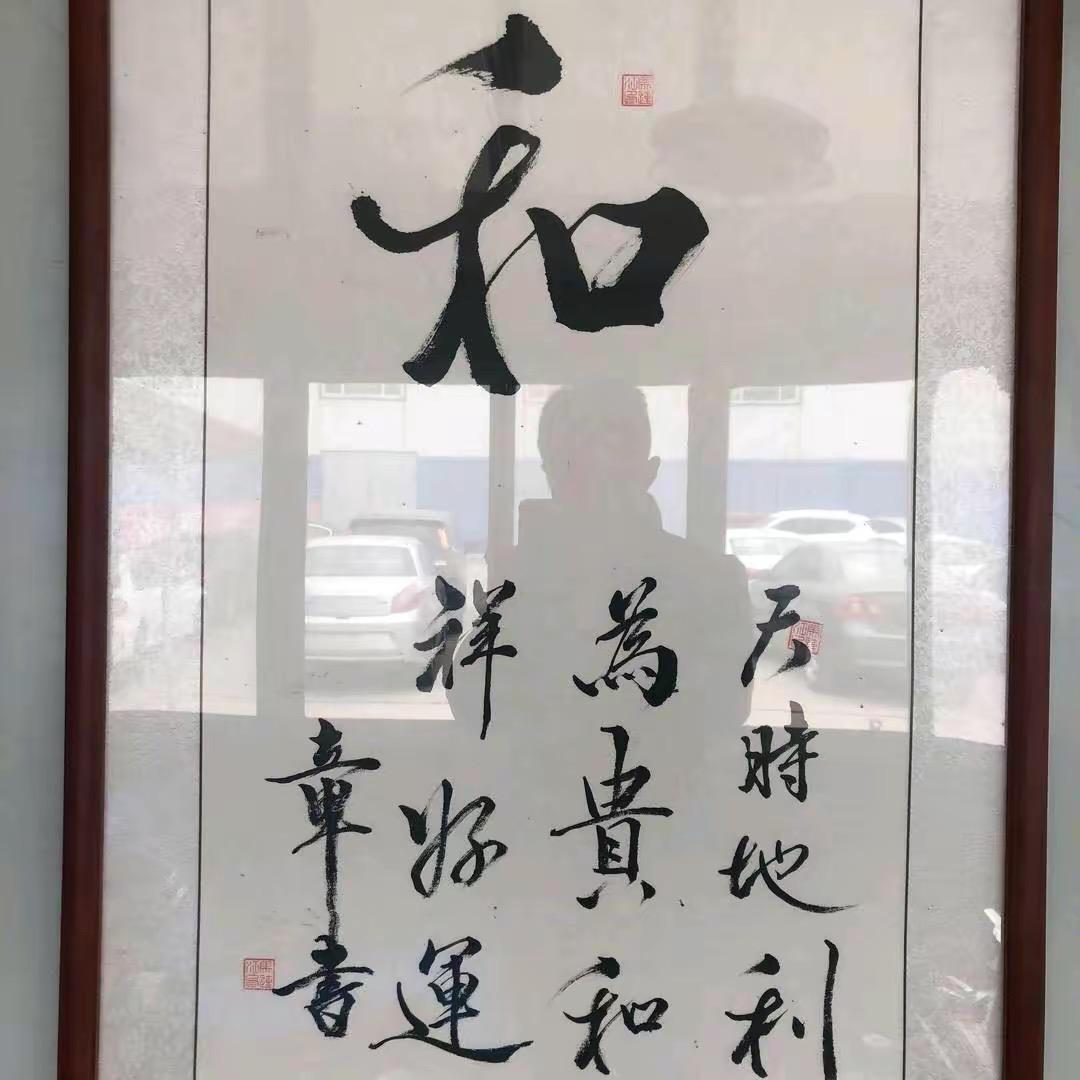 和
天時地利
為貴和
祥好運
章書